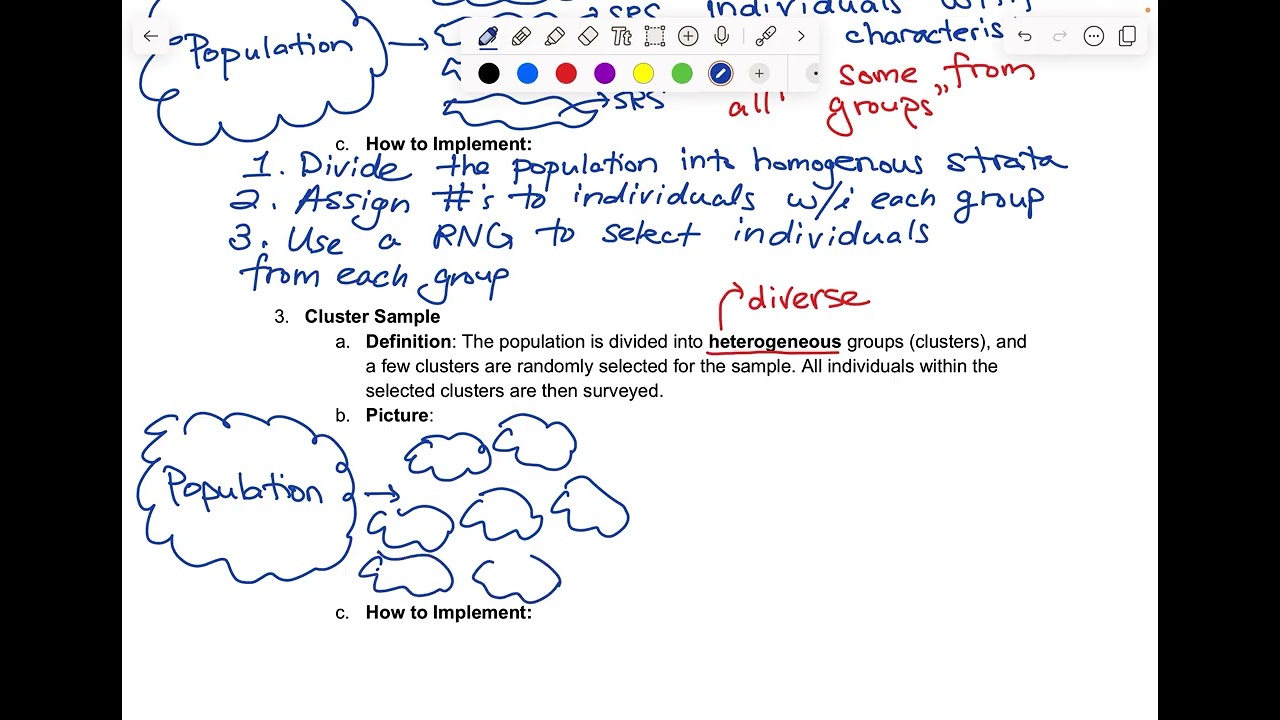 SRS individuals with
Population
characteris
some from
SRS all groups"
c. How to Implement:
1. Divide the population into homogenous strata
2. Assign #'s to individuals w/i each group
3. Use a RNG to select individuals
from each group
diverse
3. Cluster Sample
a. Definition: The population is divided into heterogeneous groups (clusters), and
a few clusters are randomly selected for the sample. All individuals within the
selected clusters are then surveyed.
b. Picture:
Population
c. How to Implement: